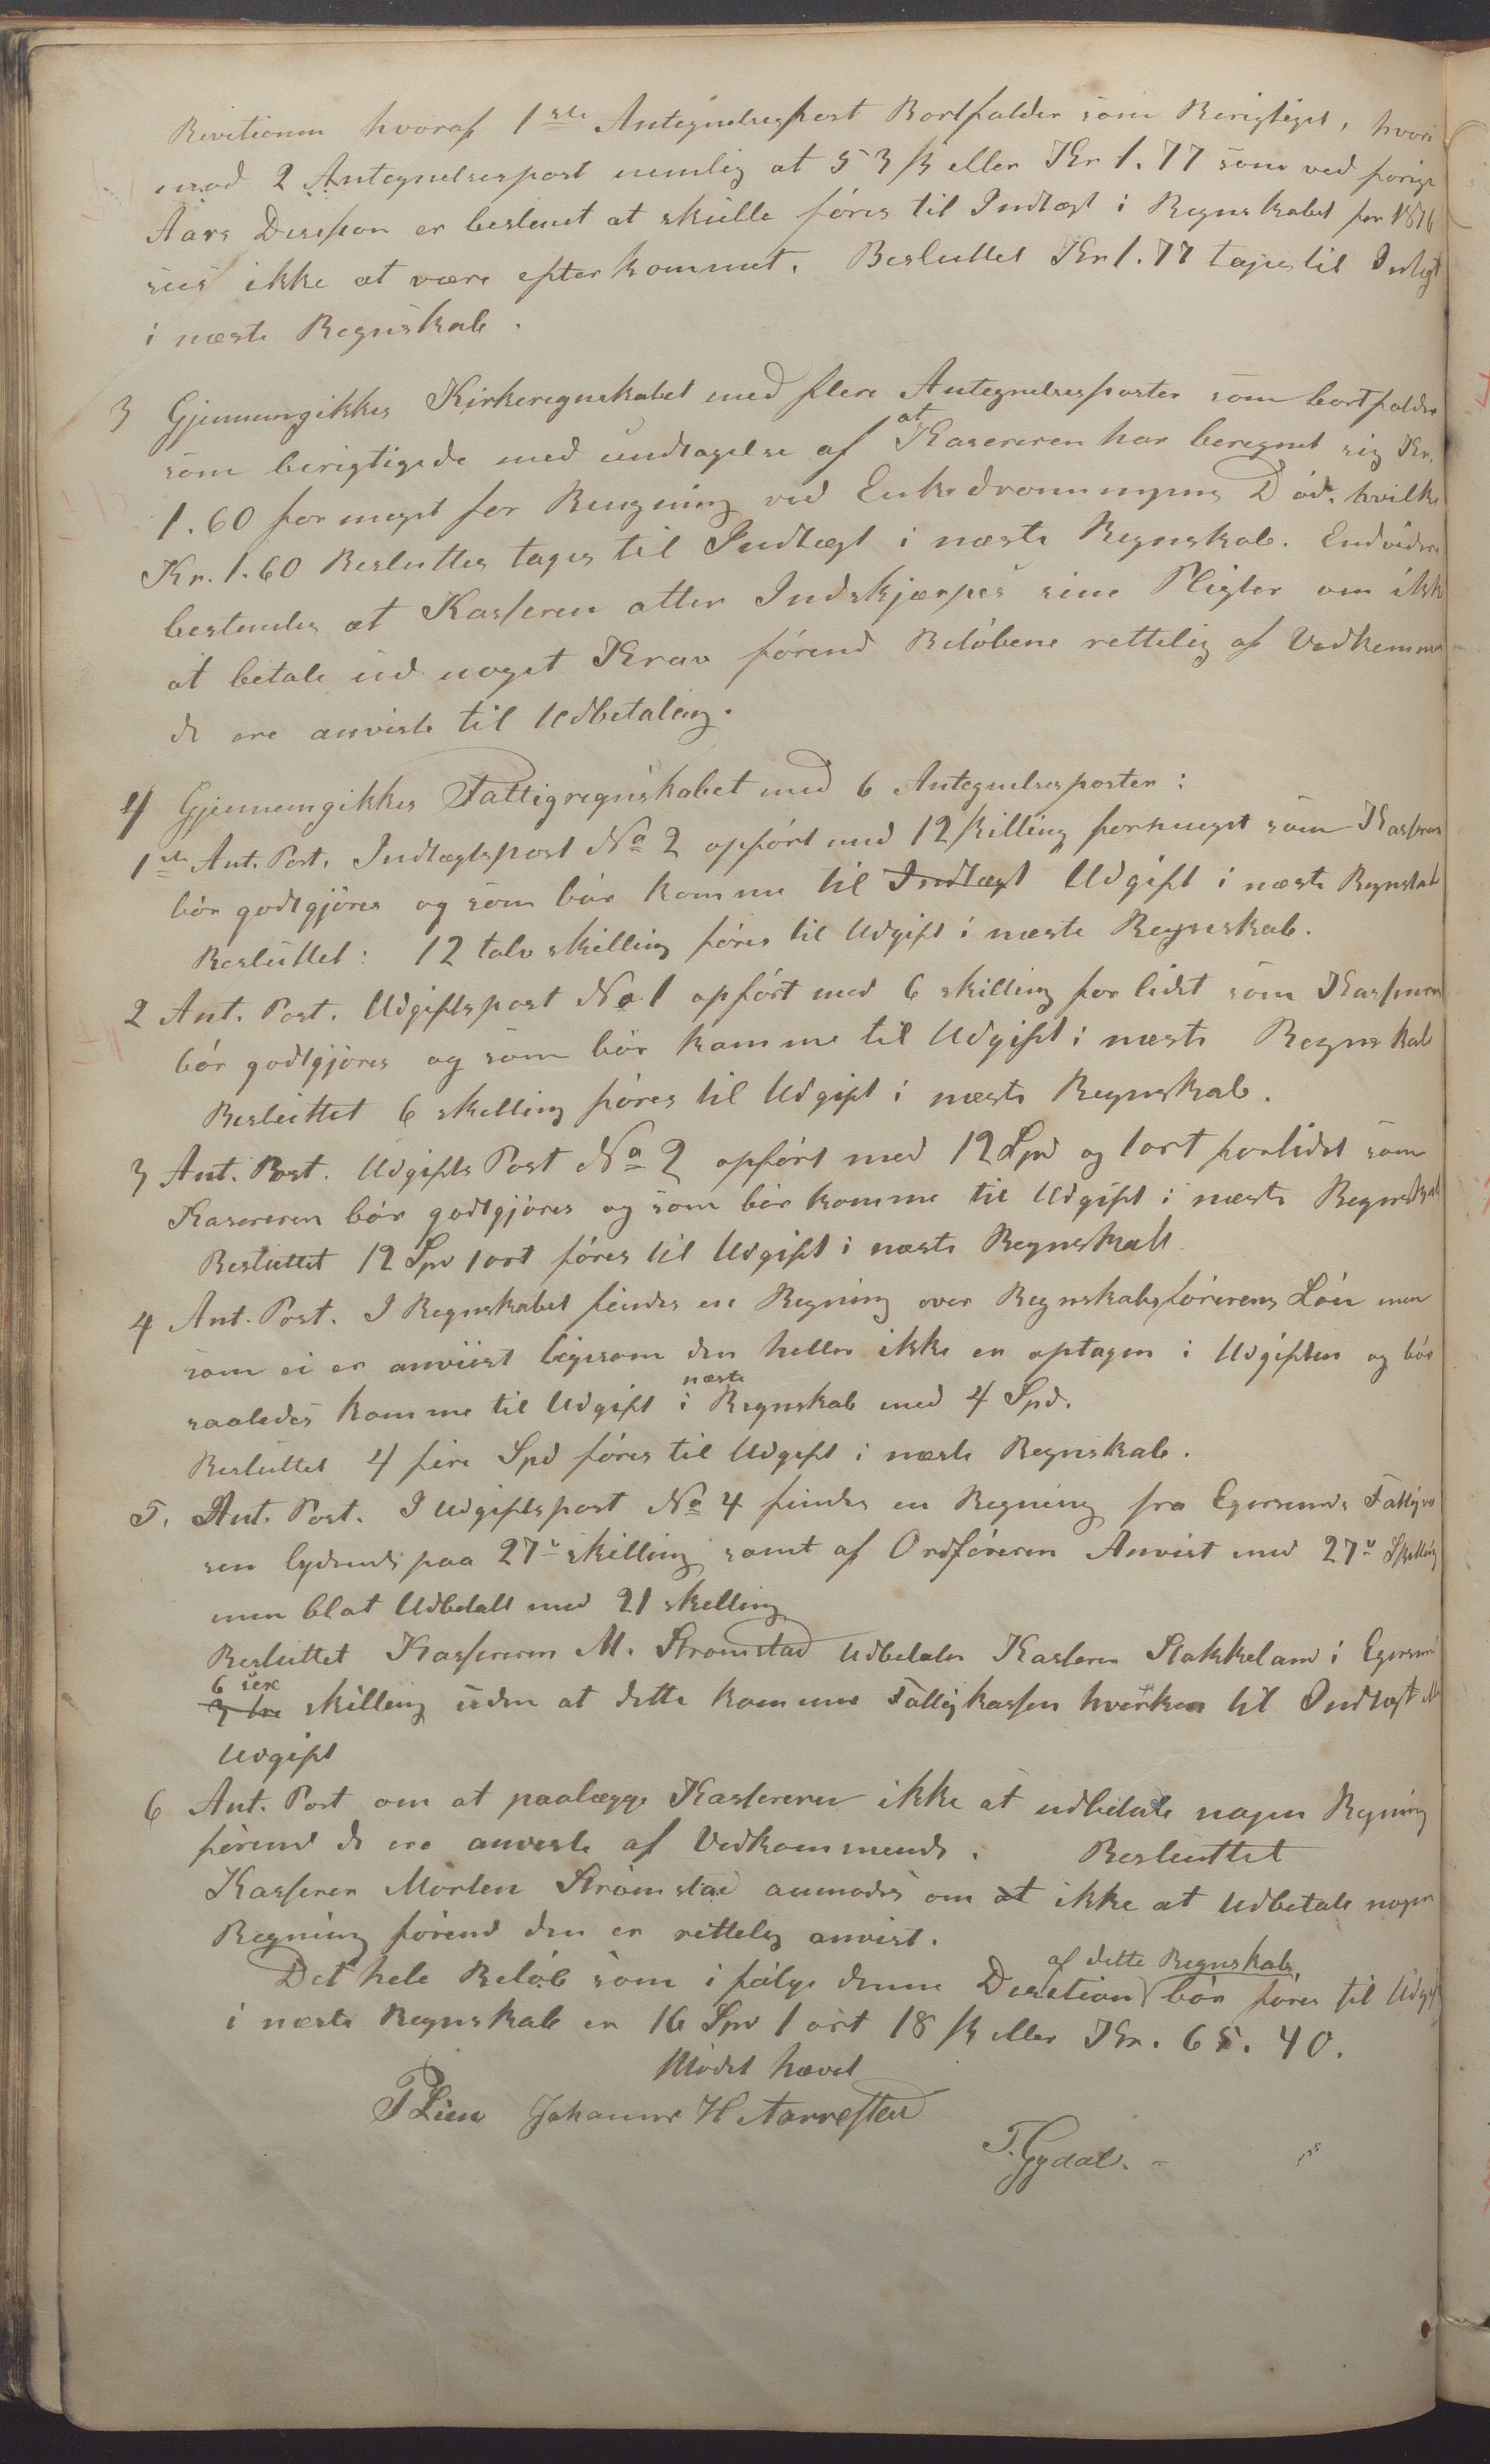 Revitionen hvoraf 1ste Antegnelsespost Bortfalder som Berigtiget, hvori
mod 2 Antegnelsespost nemlig at 53 ß eller Kr 1.77 som ved forige
Aars Desision er bestemt at skulle föres til Indtægt i Regnskabet for 1876
sees ikke at være efterkommet. Besluttet Kr 1.77 tages til Indtægt
i næste Regnskab.
3 Gjennemgikkes Kirkeregnskabet med flere Antegnelsesposter som bortfalder
som berigtigede med undtagelse af at Kasereren har beregnet sig Kr.
1.60 formeget for Ringning ved Enkedronningens Död. hvilke
Kr. 1.60 Besluttes tages til Indtægt i næste Regnskab. Endvidere
bestemtes at Kasseren atter Indskjærpes sine Pligter om ikke
at betale ud noget Krav förend Belöbene rettelig af Vedkommen
de ere anviste til Udbetaling.
4 Gjennemgikkes Fattigregnskabet med 6 Antegnelsesposter:
1ste Ant. Post. Indtægtspost No 2 opfört med 12 skilling formeget som Kasseren
bör godtgjöres og som bör komme til Indtægt Udgift i næste Regnskab
Besluttet: 12 tolv skilling föres til Udgift i næste Regnskab.
2 Ant. Post. Udgiftspost No 1 opfört med 6 skilling for lidet som Kasseren
bör godtgjöres og som bör komme til Udgift i næste Regnskab
Besluttet 6 skilling föres til Udgift i næste Regnskab.
3 Ant. Post. Udgifts Post No 2 opfört med 12 Spd og 1 ort forlidet som
Kasereren bör godtgjöres og som bör komme til Udgift i næste Regnskab
Besluttet 12 Spd 1 ort föres til Udgift i næste Regnskab
4 Ant. Post. I Regnskabet findes en Regning over Regnskabsförerens Lön men
som ei er anviist ligesom den heller ikke er optagen i Udgiften og bör
saaledes komme til Udgift i næste Regnskab med 4 Spd.
Besluttet 4 fire Spd föres til Udgift i næste Regnskab.
5. Ant. Post. I Udgiftspost No 4 findes en Regning fra Egersunds Fattigvæ
sen lydende paa 27 skilling samt af Ordföreren Anvist med 27 Skilling
men blot Udbetalt med 21 skilling
Besluttet Kassereren M. Strömstad udbetaler Kasseren Stakkeland i Egersund
3 tre 6 sex skilling uden at dette komme Fattigkassen hverken til Indtægt ell
Udgift
6 Ant. Post om at paalægge Kassereren ikke at udbetale nogen Regning
förend de ere anviste af Vedkommende. Besluttet
Kasserer Morten Strömstad anmodes om at ikke at Udbetale nogen
Regning förend den er rettelig anvist.
Det hele Belöb som i fölge denne Desition af dette Regnskab, bör föres til Udgift
i næste Regnskab er 16 Spd 1 ort 18 ß eller Kr. 65.40.
Mödet hævet
P Lien Johannes H Aarrestad
T. Gydal.